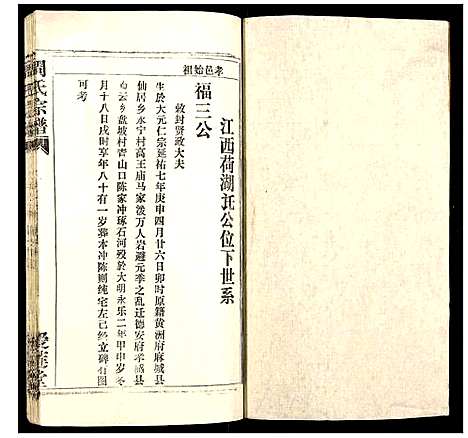 江西荷湖託公位下世系
孝邑始祖
福三公
敕封賢政大夫
生於大元仁宗延祐七年庚申四月廿六日卯時原籍黃洲府麻城县
仙居乡永宁村高王庙马家泼万人岩避元季之乱迁德安府孝感县
云乡盘坡村青山口陈家冲琢石河殁於大明永乐二年甲申岁冬
月十八日戌时享年八十有一岁葬本冲陈则纯宅左已经立碑有图
可考
周氏宗譜
愛蓮堂